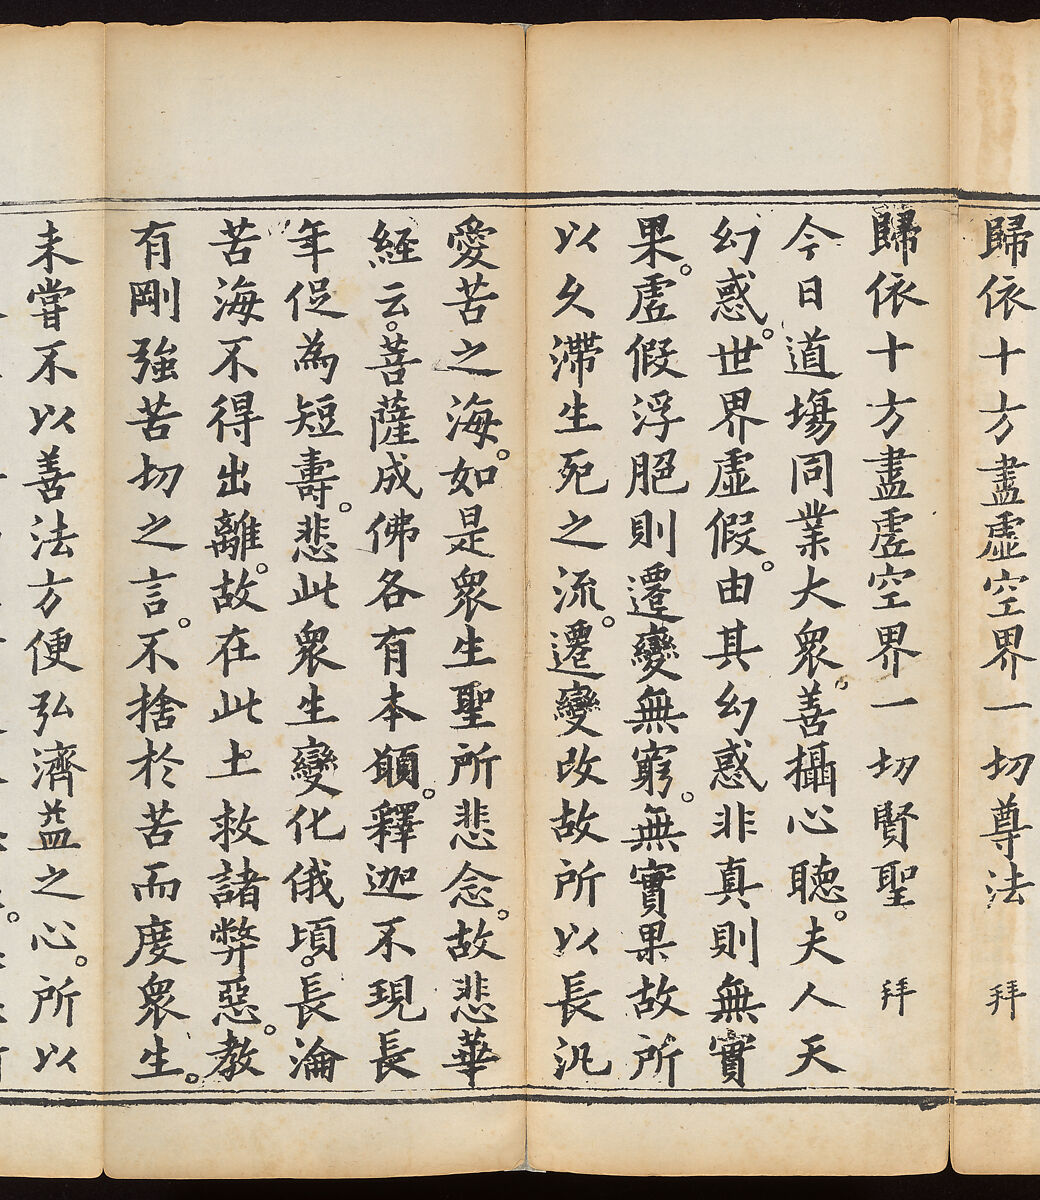 歸依十方盡虛空界一切尊法 拜
歸依十方盡虛空界一切賢聖 拜
今日道場同業大眾。善攝心聽。夫人天
幻惑。世界虛假。由其幻惑非真則無實
果。虛假浮脆則遷變無窮。無實果故所
以久滯生死之流。遷變改故所以長汎
愛苦之海。如是眾生聖所悲念。故悲華
経云。菩薩成佛各有本願。釋迦不現長
年促為短壽。悲此眾生變化俄頃。長淪
苦海不得出離。故在此土救諸弊惡。教
有剛強苦切之言。不捨於苦而度眾生。
未嘗不以善法方便弘濟益之心。所以